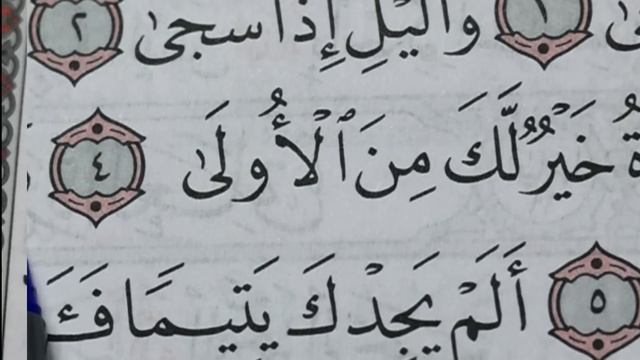 ١ وَٱلَّيْلِ إِذَا سَجَىٰ ٢
خَيْرٌ لَّكَ مِنَ ٱلْأُولَىٰ ٤
٥ أَلَمْ يَجِدْكَ يَتِيمًا